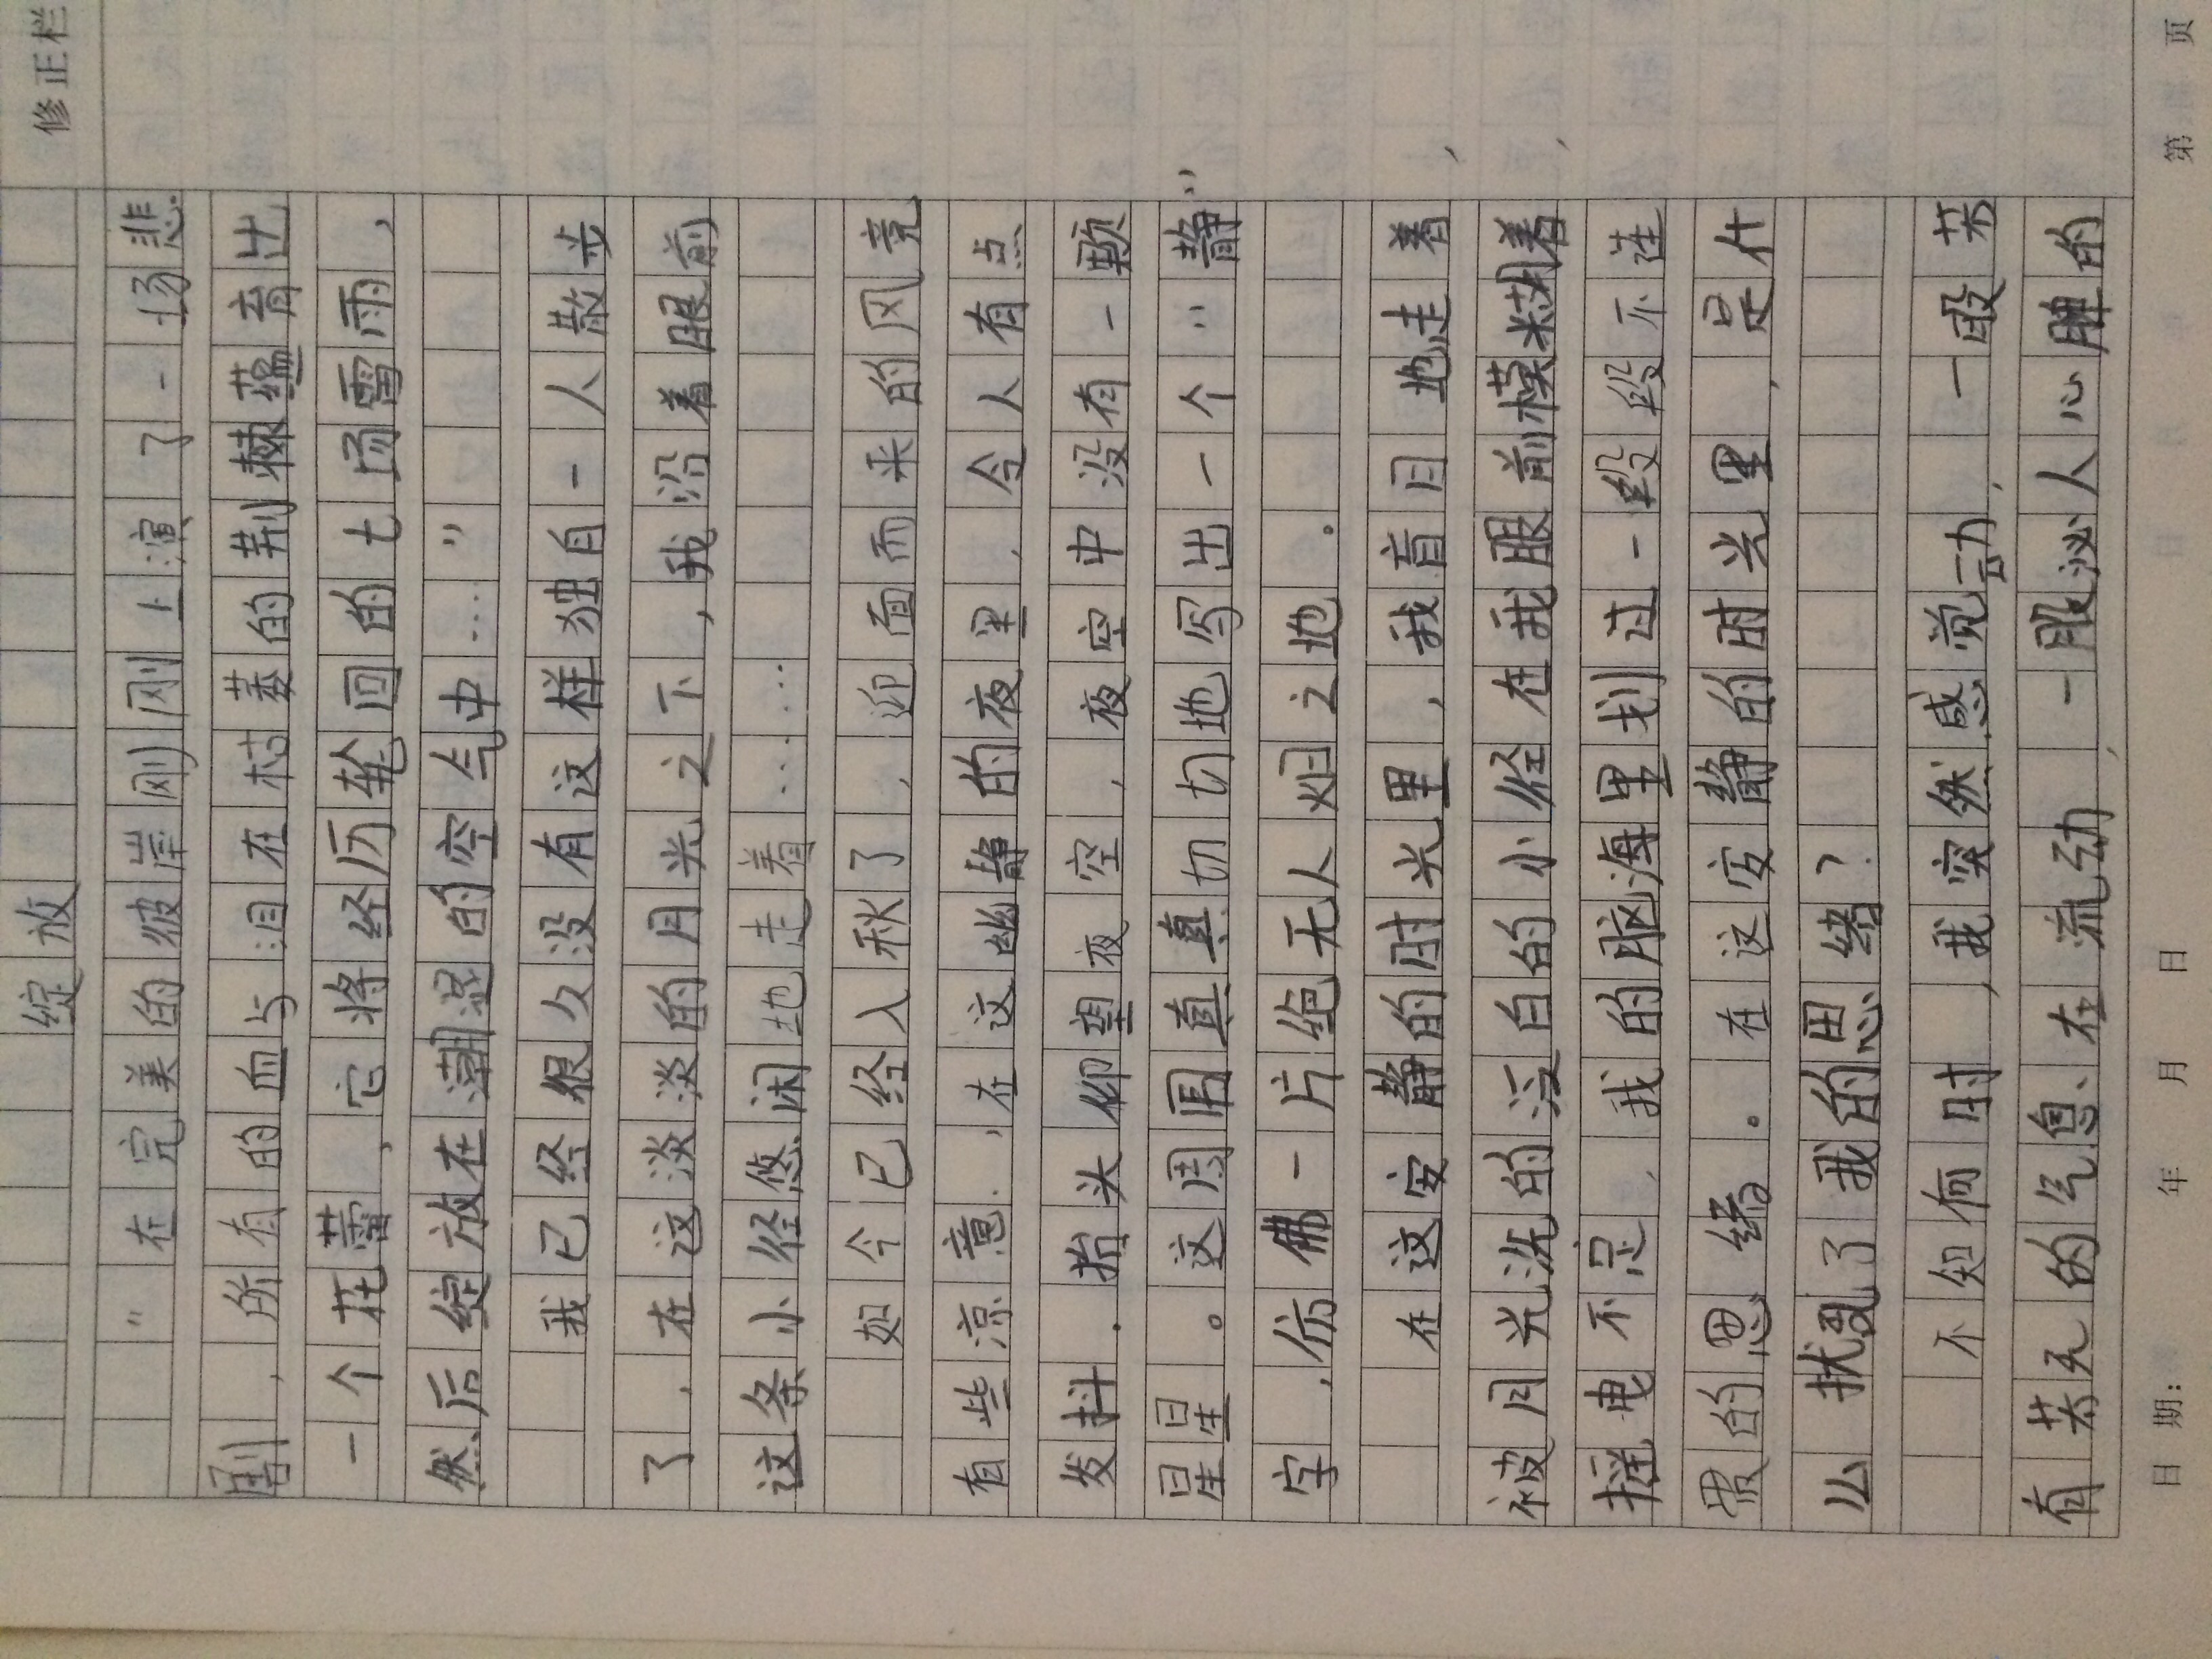 修正栏
绽放
“在完美的彼岸刚刚上演了一场悲
剧，所有的血与泪在枯萎的荆棘蕴育出
一个花蕾，它将经历轮回的七场雷雨，
然后绽放在潮湿的空气中……”
我已经很久没有这样独自一人散步
了，在这淡淡的月光之下，我沿着眼前
这条小径悠闲地走着……
如今已经入秋了，迎面而来的风竟
有些凉意，在这幽静的夜里，令人有点
发抖．抬头仰望夜空，夜空中没有一颗
星星。这周围真真切切地写出一个“静”
字，仿佛一片绝无人烟之地。
在这安静的时光里，我盲目地走着，
被月光洗的泛白的小径在我眼前模糊着，
摇曳不定，我的脑海里划过一段段不连
贯的思绪。在这安静的时光里，是什
么扰乱了我的思绪？
不知何时，我突然感觉动，一股若
有若无的气息在流动，一股沁人心脾的
日期： 年 月 日 第 页